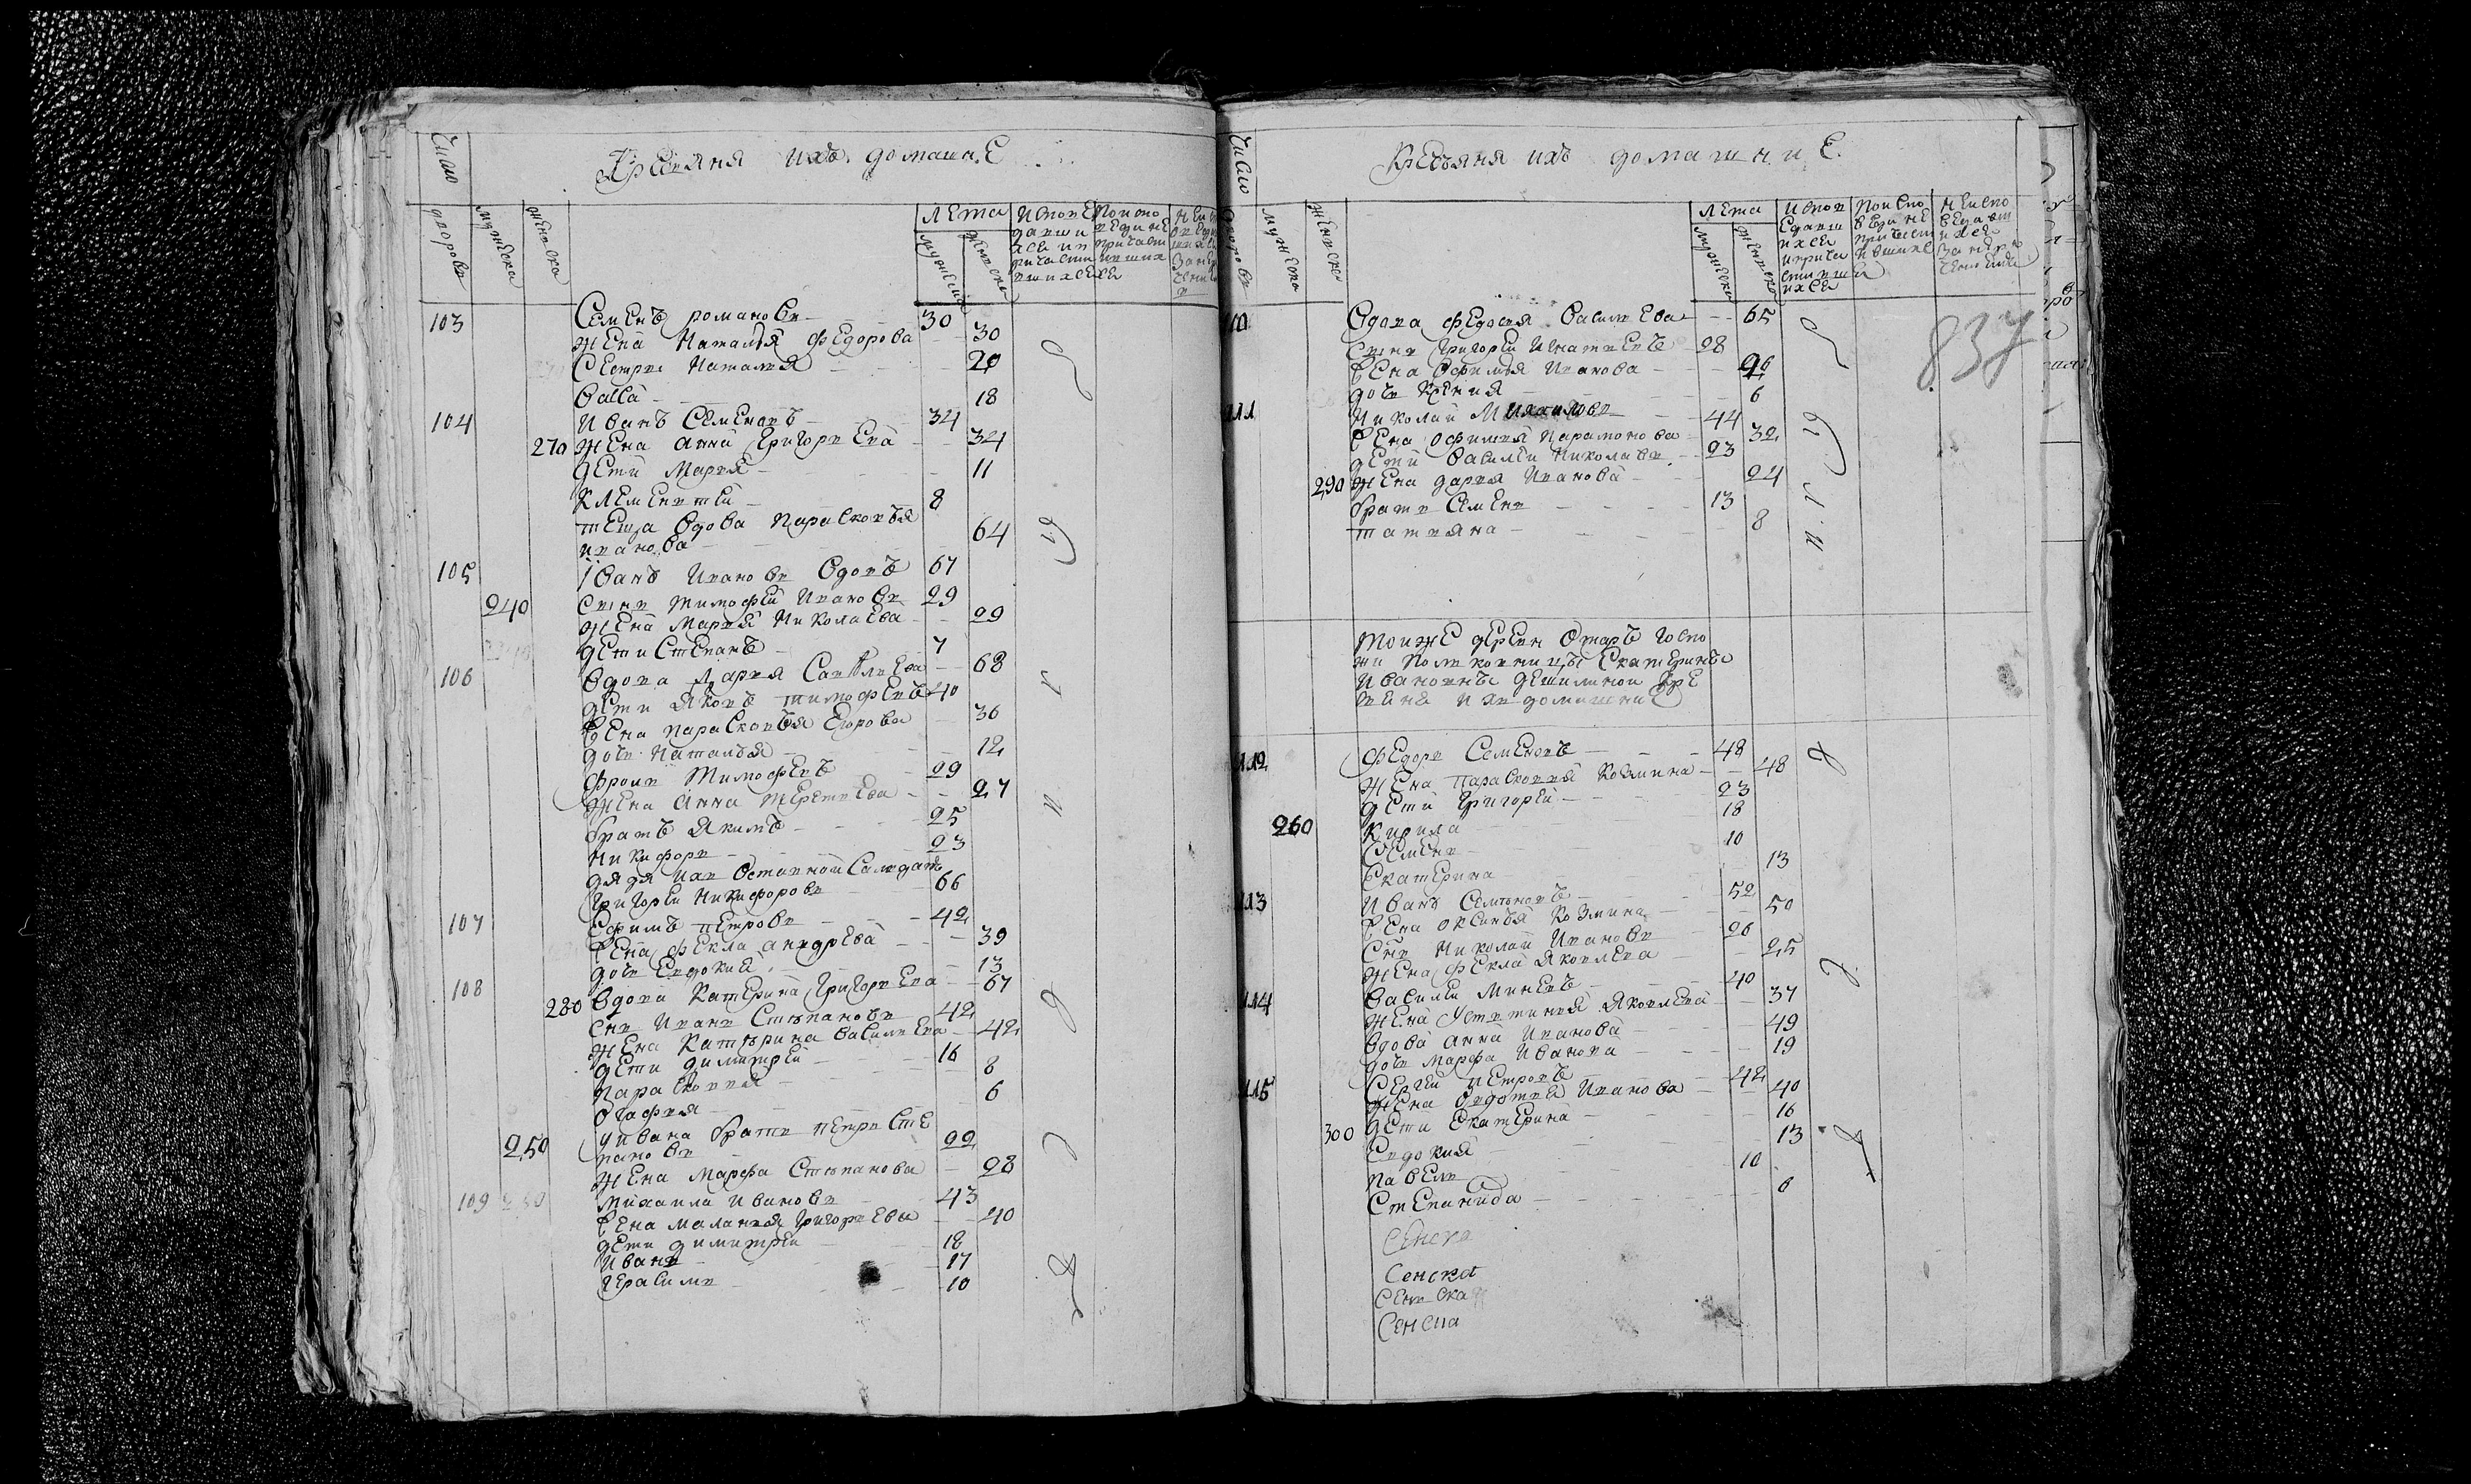 Число
Крестьяня ихъ домашн. Е
дворовъ
мужеска
женска
лета
мужеска
женска
исповедавши хся и причастившихся
по исповеди не причастившихся
103 Семенъ романовъ 30
жена Наталья федорова 30
Сестры Наталья 20
Васса 18
104 Иванъ Семеновъ 34
270 жена анна григорьева 34
дети Марья 11
Клементей 8
теща вдова Парасковья
иванова 64
105 Iванъ Ивановъ вдовъ 67
240 сынъ тимофей Ивановъ 29
жена Марья Николаева 29
дети Степанъ 7
106 вдова дарья Савельева 68
дети Яковъ тимофеевъ 40
жена парасковья Егорова 36
дочь Наталья 12
фролъ Тимофеевъ 29
жена анна терентьева 27
братъ Якимъ 25
Никифоръ 23
дядя ихъ Отставной Салдатъ
григорей Никифоровъ 66
107 Ефимъ петровъ 42
жена фекла андреева 39
дочь Евдокия 13
108 280 вдова Катерина григорьева 67
снъ Иванъ Степановъ 42
жена Катерина васильева 42
дети димитрей 16
парасковья 8
огафья 6
250 у ивана братъ петръ Сте
пановъ 22
жена Марфа Степанова 28
109 250 Михаила Ивановъ 43
жена маланья григорьева 40
дети димитрей 18
Иванъ 17
герасимъ 10
Число
Крестьяня ихъ домашние.
дворовъ
мужеска
женска
лета
мужеска
женска
837
110 Вдова федосья васильева 65
сынъ григорей Игнатьевъ 28
жена Офимья Иванова 26
дочь Ксения 6
111 Николай Михаиловъ 44
жена офимья парамонова 32
дети василей Николаевъ 23
290 жена дарья Иванова 24
братъ Семенъ 13
татьяна 8
были
Тоиже дервн Отаръ госпо
жи полковницы Екатерины
Ивановны дешилиной кре
стьяня ихъ домашние
112 федоръ Семеновъ 48
жена парасковья козмина 48
дети григорей 23
260 Кирила 18
Семенъ 10
Екатерина 13
113 Иванъ Семеновъ 52
жена оксинья козмина 50
Снъ Николай Ивановъ 26
жена фекла Яковлева 25
114 василей Минеевъ 40
жена Устинья Яковлева 37
вдова анна Иванова 49
дочь марфа Иванова 19
115 Сергей петровъ 42
жена овдотья Иванова 40
дети Екатерина 16
300 Евдокия 13
павелъ 10
Степанида 6
Сенска
Сенска
Сенска